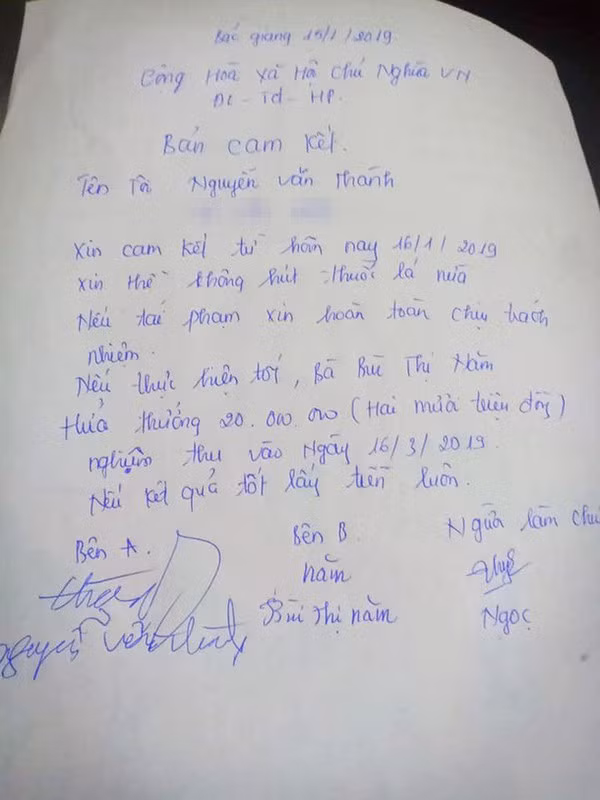 Bắc giang 15/1/2019
Cộng Hoà Xã Hội Chủ Nghĩa VN
ĐL - Td - HP.
Bản cam kết.
Tên Tôi Nguyễn văn Thành
Xin cam kết từ hôm nay 16/1/2019
xin thề không hút thuốc lá nữa
Nếu tái phạm xin hoàn toàn chịu trách
nhiệm.
Nếu thực hiện tốt, Bà Bùi Thị Năm
Hứa thưởng 20.000.000 (Hai mươi triệu đồng)
nghiệm thu vào Ngày 16/3/2019.
Nếu kết quả tốt lấy tiền luôn.
Bên A. Bên B Người làm chứ
năm
Bùi thị năm Ngọc
Nguyễn Văn Thành